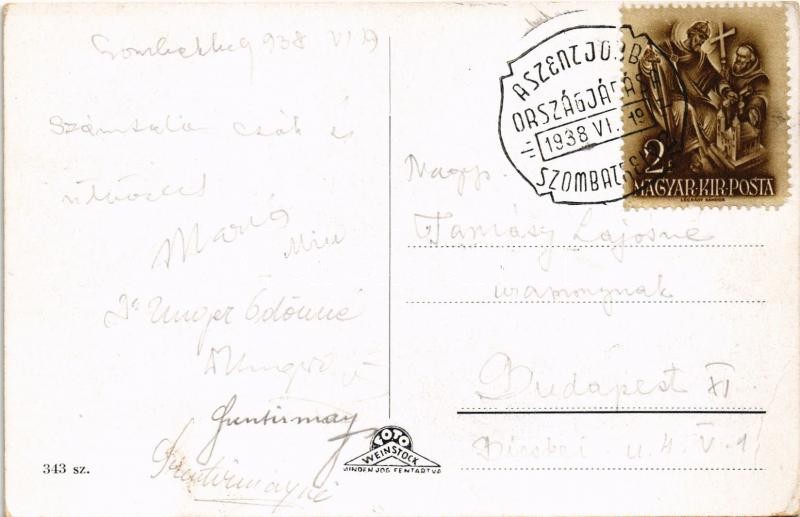 Szombathely 938 VI 19
Számtalan csók és
üdvözlet
Maria
Dr Unger Ödönné
Szentirmay
Szentirmayné
343 sz.
FOTO
WEINSTOCK
MINDEN JOG FENTARTVA
A SZENT JOBB
ORSZÁGJÁRÁSA
1938 VI. 19
SZOMBATHELY
2
MAGYAR·KIR·POSTA
LÉGRÁDY SÁNDOR
Nagys.
Tamásy Lajosné
úrasszonynak
Budapest XI
u. 4. V. 1